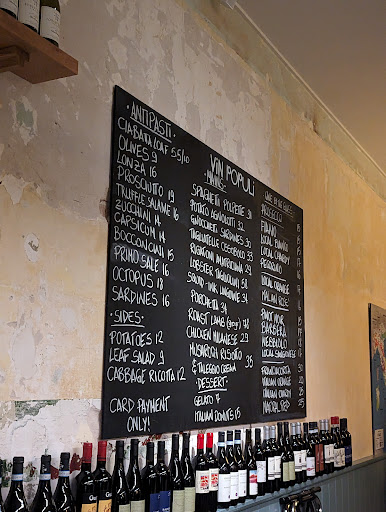 ANTIPASTI
CIABATA LOAF 5.5/10
OLIVES 9
LONZA 16
PROSCIUTTO 19
TRUFFLE SALAME 16
ZUCCHINI 14
CAPSICUM 14
BOCCONCINI 15
PRIMO SALE 16
OCTOPUS 18
SARDINES 16
• SIDES •
POTATOES 12
LEAF SALAD 9
CABBAGE RICOTTA 12
CARD PAYMENT
ONLY!
VIN POPULI
• MAINS •
SPAGHETTI POLPETTE 30
POTATO AGNOLOTTI 32
GNOCCHETTI SARDINES 30
TAGLIATELLE OSSOBUCO 33
RIGATONI NORCINA 29
LOBSTER TAGLIOLINI 38
SQUID-INK LINGUINE 34
PORCHETTA 34
ROAST LAMB
CHICKEN MILANESE 29
MUSHROOM RISOTTO
& TALEGGIO CREAM 38
DESSERT
GELATO 7
ITALIAN DONUTS 15
PROSECCO
FIANO
LOCAL BIANCO
LOCAL
LOCAL ORANGE
ITALIAN ROSÉ
PINOT NOIR
BARBERA
NEBBIOLO
LOCAL SANGIOVESE
FRANCIACORTA
ITALIAN ORANGE
ITALIAN